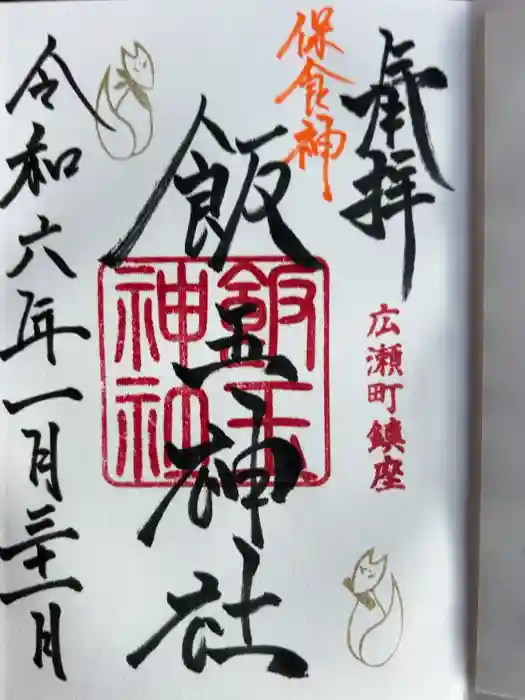 奉拝
広瀬町鎮座
保食神
飯玉神社
飯玉
神社
令和六年一月三十一日